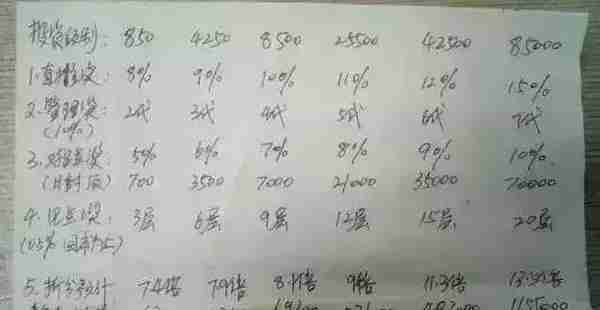 投资级别: 850 4250 8500 25500 42500 85000
1.直推奖: 8% 9% 10% 11% 12% 15%
2.管理奖: 2代 3代 4代 5代 6代 7代
(10%)
3.对碰奖: 5% 6% 7% 8% 9% 10%
(日封顶) 700 3500 7000 21000 35000 70000
4.见点奖: 3层 6层 9层 12层 15层 20层
(0.5%
5.拆分累计 7.4倍 7.9倍 8.4倍 9倍 11.3倍